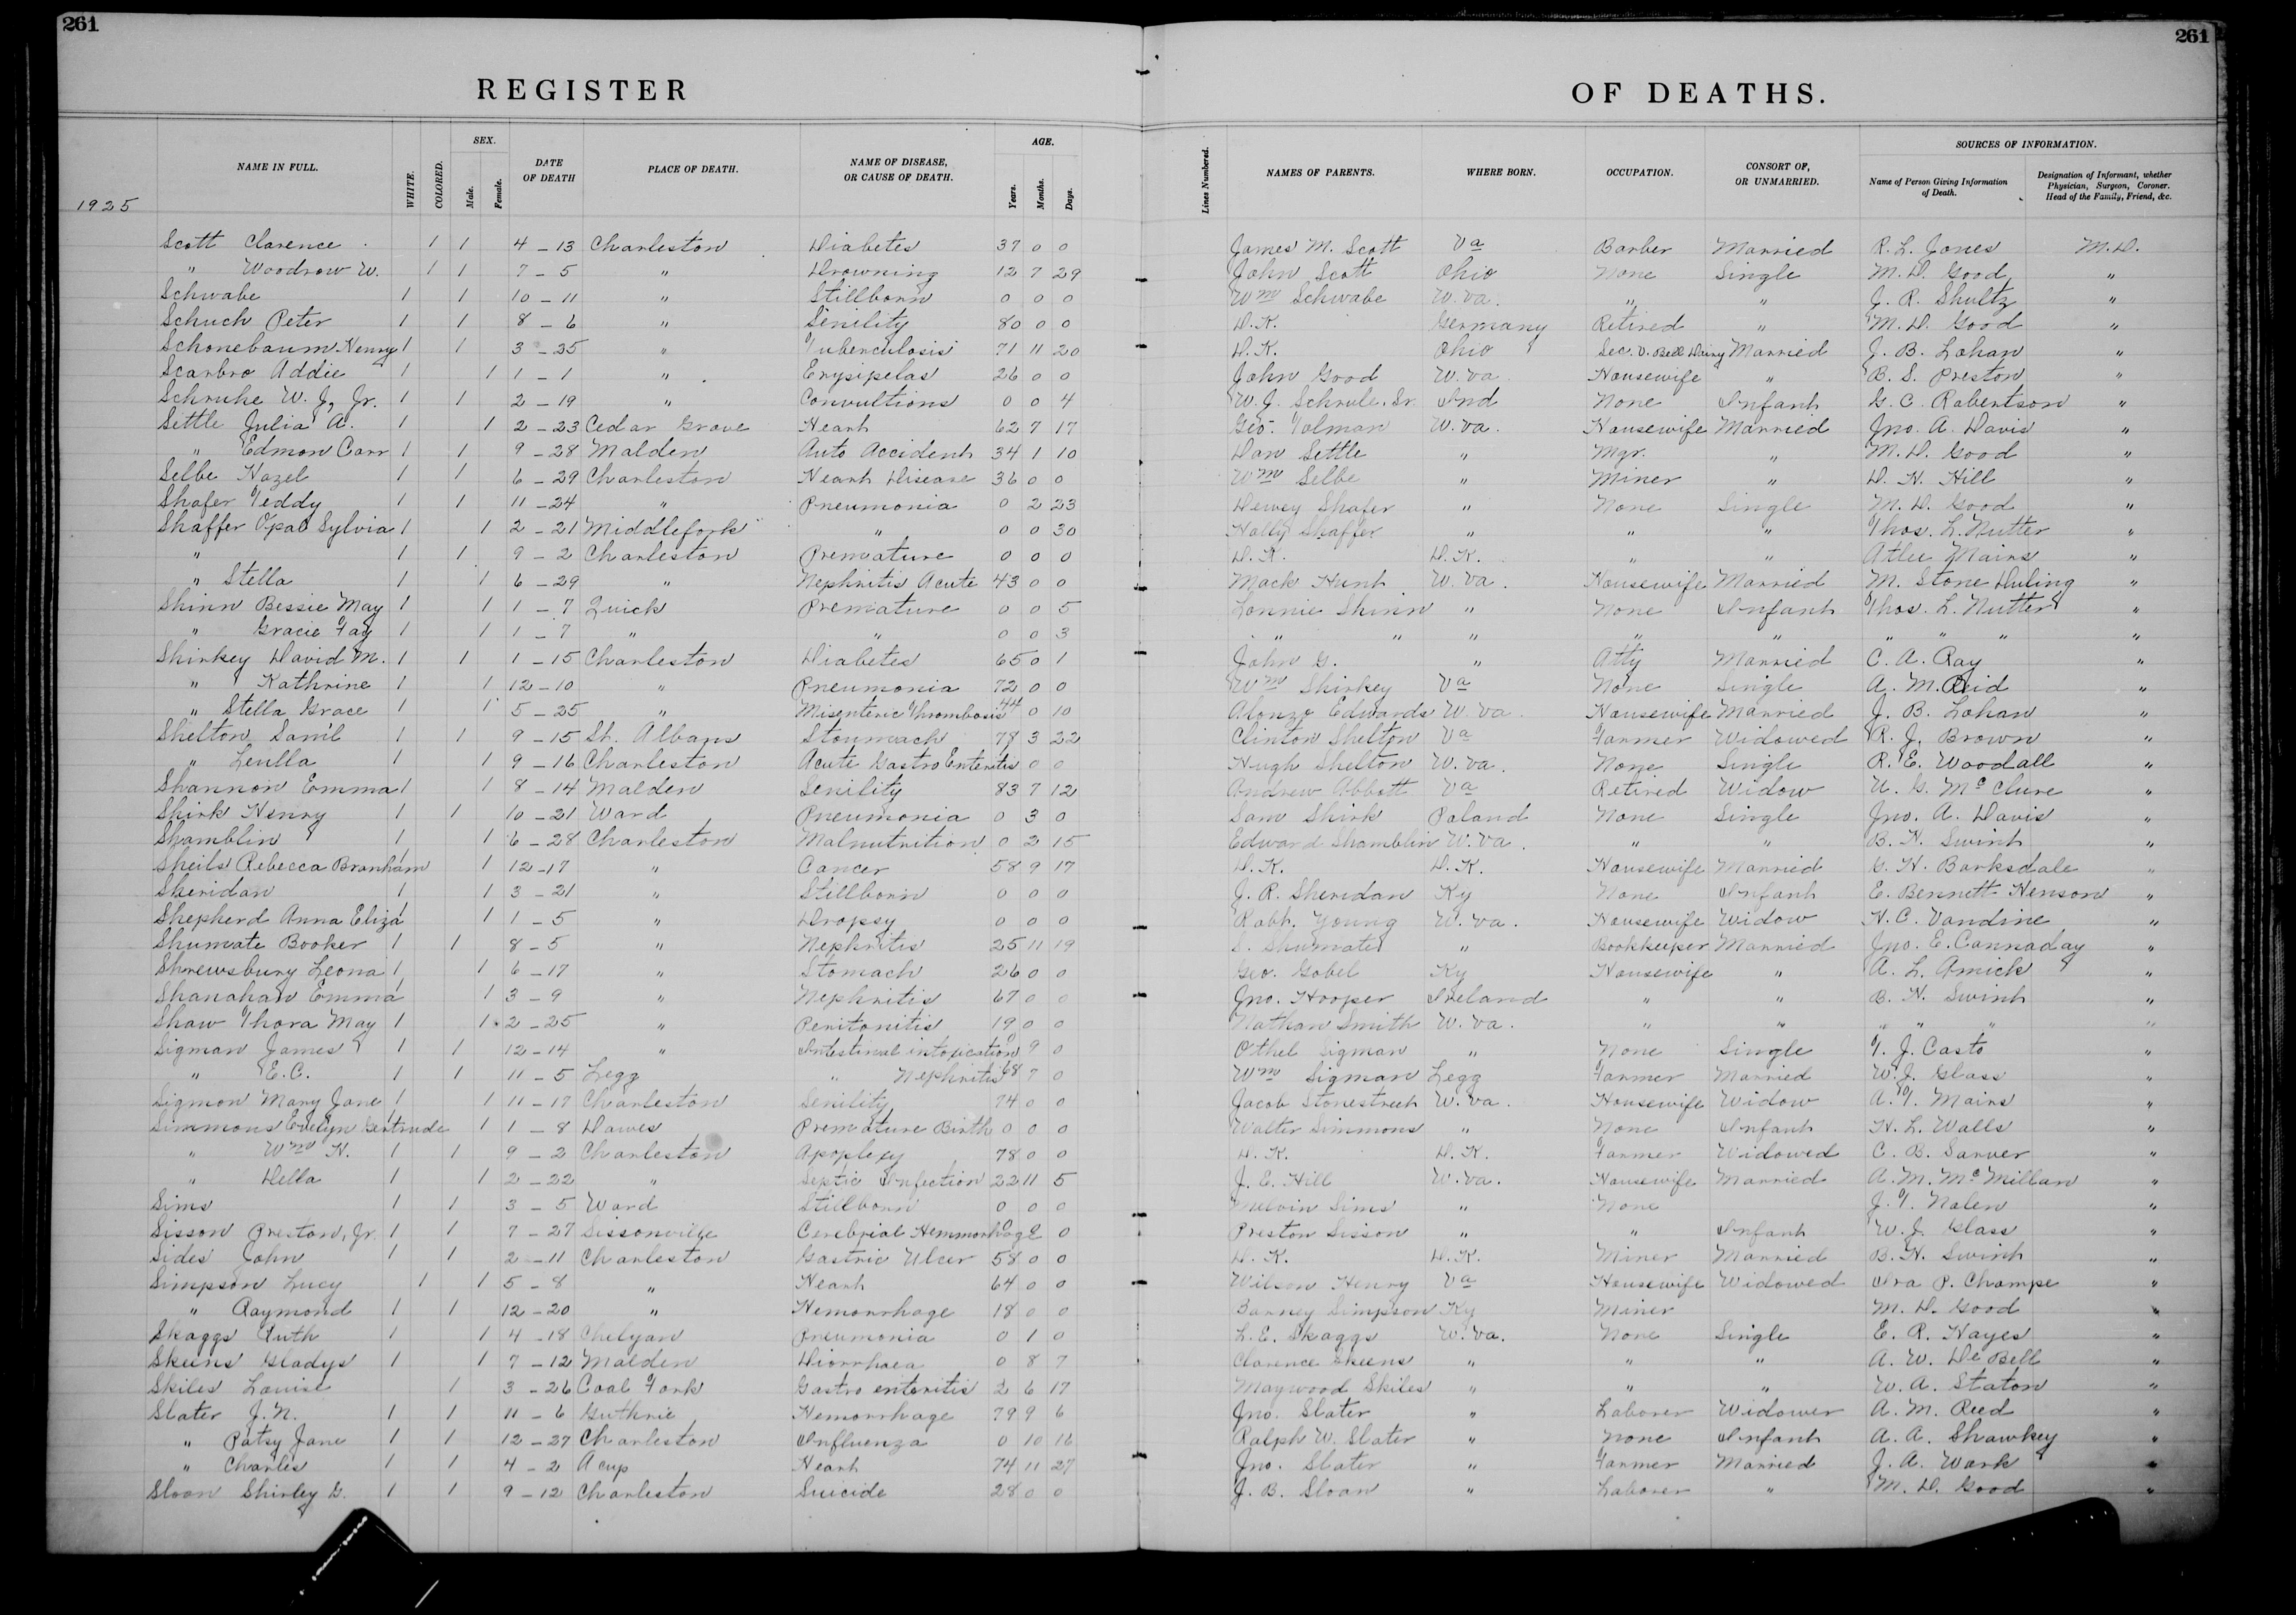 261
261
REGISTER OF DEATHS.
NAME IN FULL. WHITE. COLORED. SEX. Male. Female. DATE OF DEATH PLACE OF DEATH. NAME OF DISEASE, OR CAUSE OF DEATH. AGE. Years. Months. Days. Lines Numbered. NAMES OF PARENTS. WHERE BORN. OCCUPATION. CONSORT OF, OR UNMARRIED. SOURCES OF INFORMATION. Name of Person Giving Information of Death. Designation of Informant, whether Physician, Surgeon, Coroner. Head of the Family, Friend, &c.
1925
Scott Clarence 1 1 4-13 Charleston Diabetes 37 0 0 James M. Scott Va Barber Married R. L. Jones M.D.
" Woodrow W. 1 1 7-5 " Drowning 12 7 29 John Scott Ohio None Single M. D. Good "
Schwabe 1 1 10-11 " Stillborn 0 0 0 Wm Schwabe W. Va. " " J. R. Shultz "
Schuch Peter 1 1 8-6 " Senility 80 0 0 D.K. Germany Retired " M. D. Good "
Schonebaum Henry 1 1 3-25 " Tuberculosis 71 11 20 D.K. Ohio Sec. V. Bell Dairy Married J. B. Lohan "
Scarbro Addie 1 1 1-1 " Erysipelas 26 0 0 John Good W. Va Housewife " B. S. Preston "
Schruhe W. J, Jr. 1 1 2-19 " Convultions 0 0 4 W. J. Schrule, Sr. Ind None Infant G. C. Robertson "
Settle Julia A. 1 1 2-23 Cedar Grove Heart 62 7 17 Geo. Tolman W. Va. Housewife Married Jno. A. Davis "
" Edmon Carr 1 1 9-28 Malden Auto Accident 34 1 10 Dan Settle " Mgr. " M. D. Good "
Selbe Hazel 1 1 6-29 Charleston Heart Disease 36 0 0 Wm Selbe " Miner " D. H. Hill "
Shafer Teddy 1 1 11-24 " Pneumonia 0 2 23 Dewey Shafer " None Single M. D. Good "
Shaffer Opal Sylvia 1 1 2-21 Middlefork " 0 0 30 Hally Shaffer " " " Thos. L. Nutter "
" 1 1 9-2 Charleston Premature 0 0 0 D.K. D.K. " " Atlee Mairs "
" Stella 1 1 6-29 " Nephritis Acute 43 0 0 Mack Hunt W. Va. Housewife Married M. Stone Duling "
Shinn Bessie May 1 1 1-7 Quick Premature 0 0 5 Lonnie Shinn " None Infant Thos. L. Nutter "
" Gracie Fay 1 1 1-7 " " 0 0 3 " " " " " " " " "
Shirkey David M. 1 1 1-15 Charleston Diabetes 65 0 1 John G. " Atty Married C. A. Ray "
" Kathrine 1 1 12-10 " Pneumonia 72 0 0 Wm Shirkey Va None Single A. M. Reid "
" Stella Grace 1 1 5-25 " Misenteric Thrombosis 44 0 10 Alonzo Edwards W. Va. Housewife Married J. B. Lohan "
Shelton Saml 1 1 9-15 St. Albans Stoumach 78 3 22 Clinton Shelton Va Farmer Widowed R. J. Brown "
" Leulla 1 1 9-16 Charleston Acute Gastro Enteritis 0 0 Hugh Shelton W. Va. None Single R. E. Woodall "
Shannon Emma 1 1 8-14 Malden Senility 83 7 12 Andrew Abbott Va Retired Widow U. G. McClure "
Shirk Henry 1 1 10-21 Ward Pneumonia 0 3 0 Sam Shirk Poland None Single Jno. A. Davis "
Shamblin 1 1 6-28 Charleston Malnutrition 0 2 15 Edward Shamblin W. Va. " " B. H. Swint "
Sheils Rebecca Branham 1 1 12-17 " Cancer 58 9 17 D.K. D.K. Housewife Married G. H. Barksdale "
Sheridan 1 1 3-21 " Stillborn 0 0 0 J. R. Sheridan Ky None Infant E. Bennett Henson "
Shepherd Anna Eliza 1 1 1-5 " Dropsy 0 0 0 Robt. Young W. Va. Housewife Widow H. C. Vandine "
Shumate Booker 1 1 8-5 " Nephritis 25 11 19 S. Shumate " Bookkeeper Married Jno. E. Cannaday "
Shrewsbury Leona 1 1 6-17 " Stomach 26 0 0 Geo. Gobel Ky Housewife " A. L. Amick "
Shanahan Emma 1 1 3-9 " Nephritis 67 0 0 Jno. Hooper Ireland " " B. H. Swint "
Shaw Thora May 1 1 2-25 " Peritonitis 19 0 0 Nathan Smith W. Va. " " " " " "
Sigman James 1 1 12-14 " Intestinal intoxication 0 9 0 Othel Sigman " None Single T. J. Casto "
" E.C. 1 1 11-5 Legg " Nephritis 68 7 0 Wm Sigman Legg Farmer Married W. J. Glass "
Sigmon Mary Jane 1 1 11-17 Charleston Senility 74 0 0 Jacob Stonestreet W. Va. Housewife Widow A. T. Mairs "
Simmons Evelyn Gertrude 1 1-8 Dawes Premature Birth 0 0 0 Walter Simmons " None Infant H. L. Walls "
" Wm H. 1 1 9-2 Charleston Apoplexy 78 0 0 D.K. D.K. Farmer Widowed C. B. Sarver "
" Della 1 1 2-22 " Septic Infection 22 11 5 J. E. Hill W. Va. Housewife Married A. M. McMillan "
Sims 1 1 3-5 Ward Stillborn 0 0 0 Melvin Sims " None J. T. Nalen "
Sisson Preston, Jr. 1 1 7-27 Sissonville Cerebrial Hemmorhage 0 2 0 Preston Sisson " " Infant W. J. Glass "
Sides John 1 1 2-11 Charleston Gastric Ulcer 58 0 0 D.K. D.K. Miner Married B. H. Swint "
Simpson Lucy 1 1 5-8 " Heart 64 0 0 Wilson Henry Va Housewife Widowed Ira P. Champe "
" Raymond 1 1 12-20 " Hemorrhage 18 0 0 Barney Simpson Ky Miner M. D. Good "
Skaggs Ruth 1 1 4-18 Chelyan Pneumonia 0 1 0 L. E. Skaggs W. Va. None Single E. R. Hayes "
Skeens Gladys 1 1 7-12 Malden Diorrhaea 0 8 7 Clarence Skeens " " " A. W. De Bell "
Skiles Louise 1 3-26 Coal Fork Gastro enteritis 2 6 17 Maywood Skiles " " " W. A. Staton "
Slater J. N. 1 1 11-6 Guthrie Hemorrhage 79 9 6 Jno. Slater " Laborer Widower A. M. Reed "
" Patsy Jane 1 1 12-27 Charleston Influenza 0 10 16 Ralph W. Slater " None Infant A. A. Shawkey "
" Charles 1 1 4-2 Acup Heart 74 11 27 Jno. Slater " Farmer Married J. A. Wark "
Sloan Shirley G. 1 1 9-12 Charleston Suicide 28 0 0 J. B. Sloan " Laborer " M. D. Good "